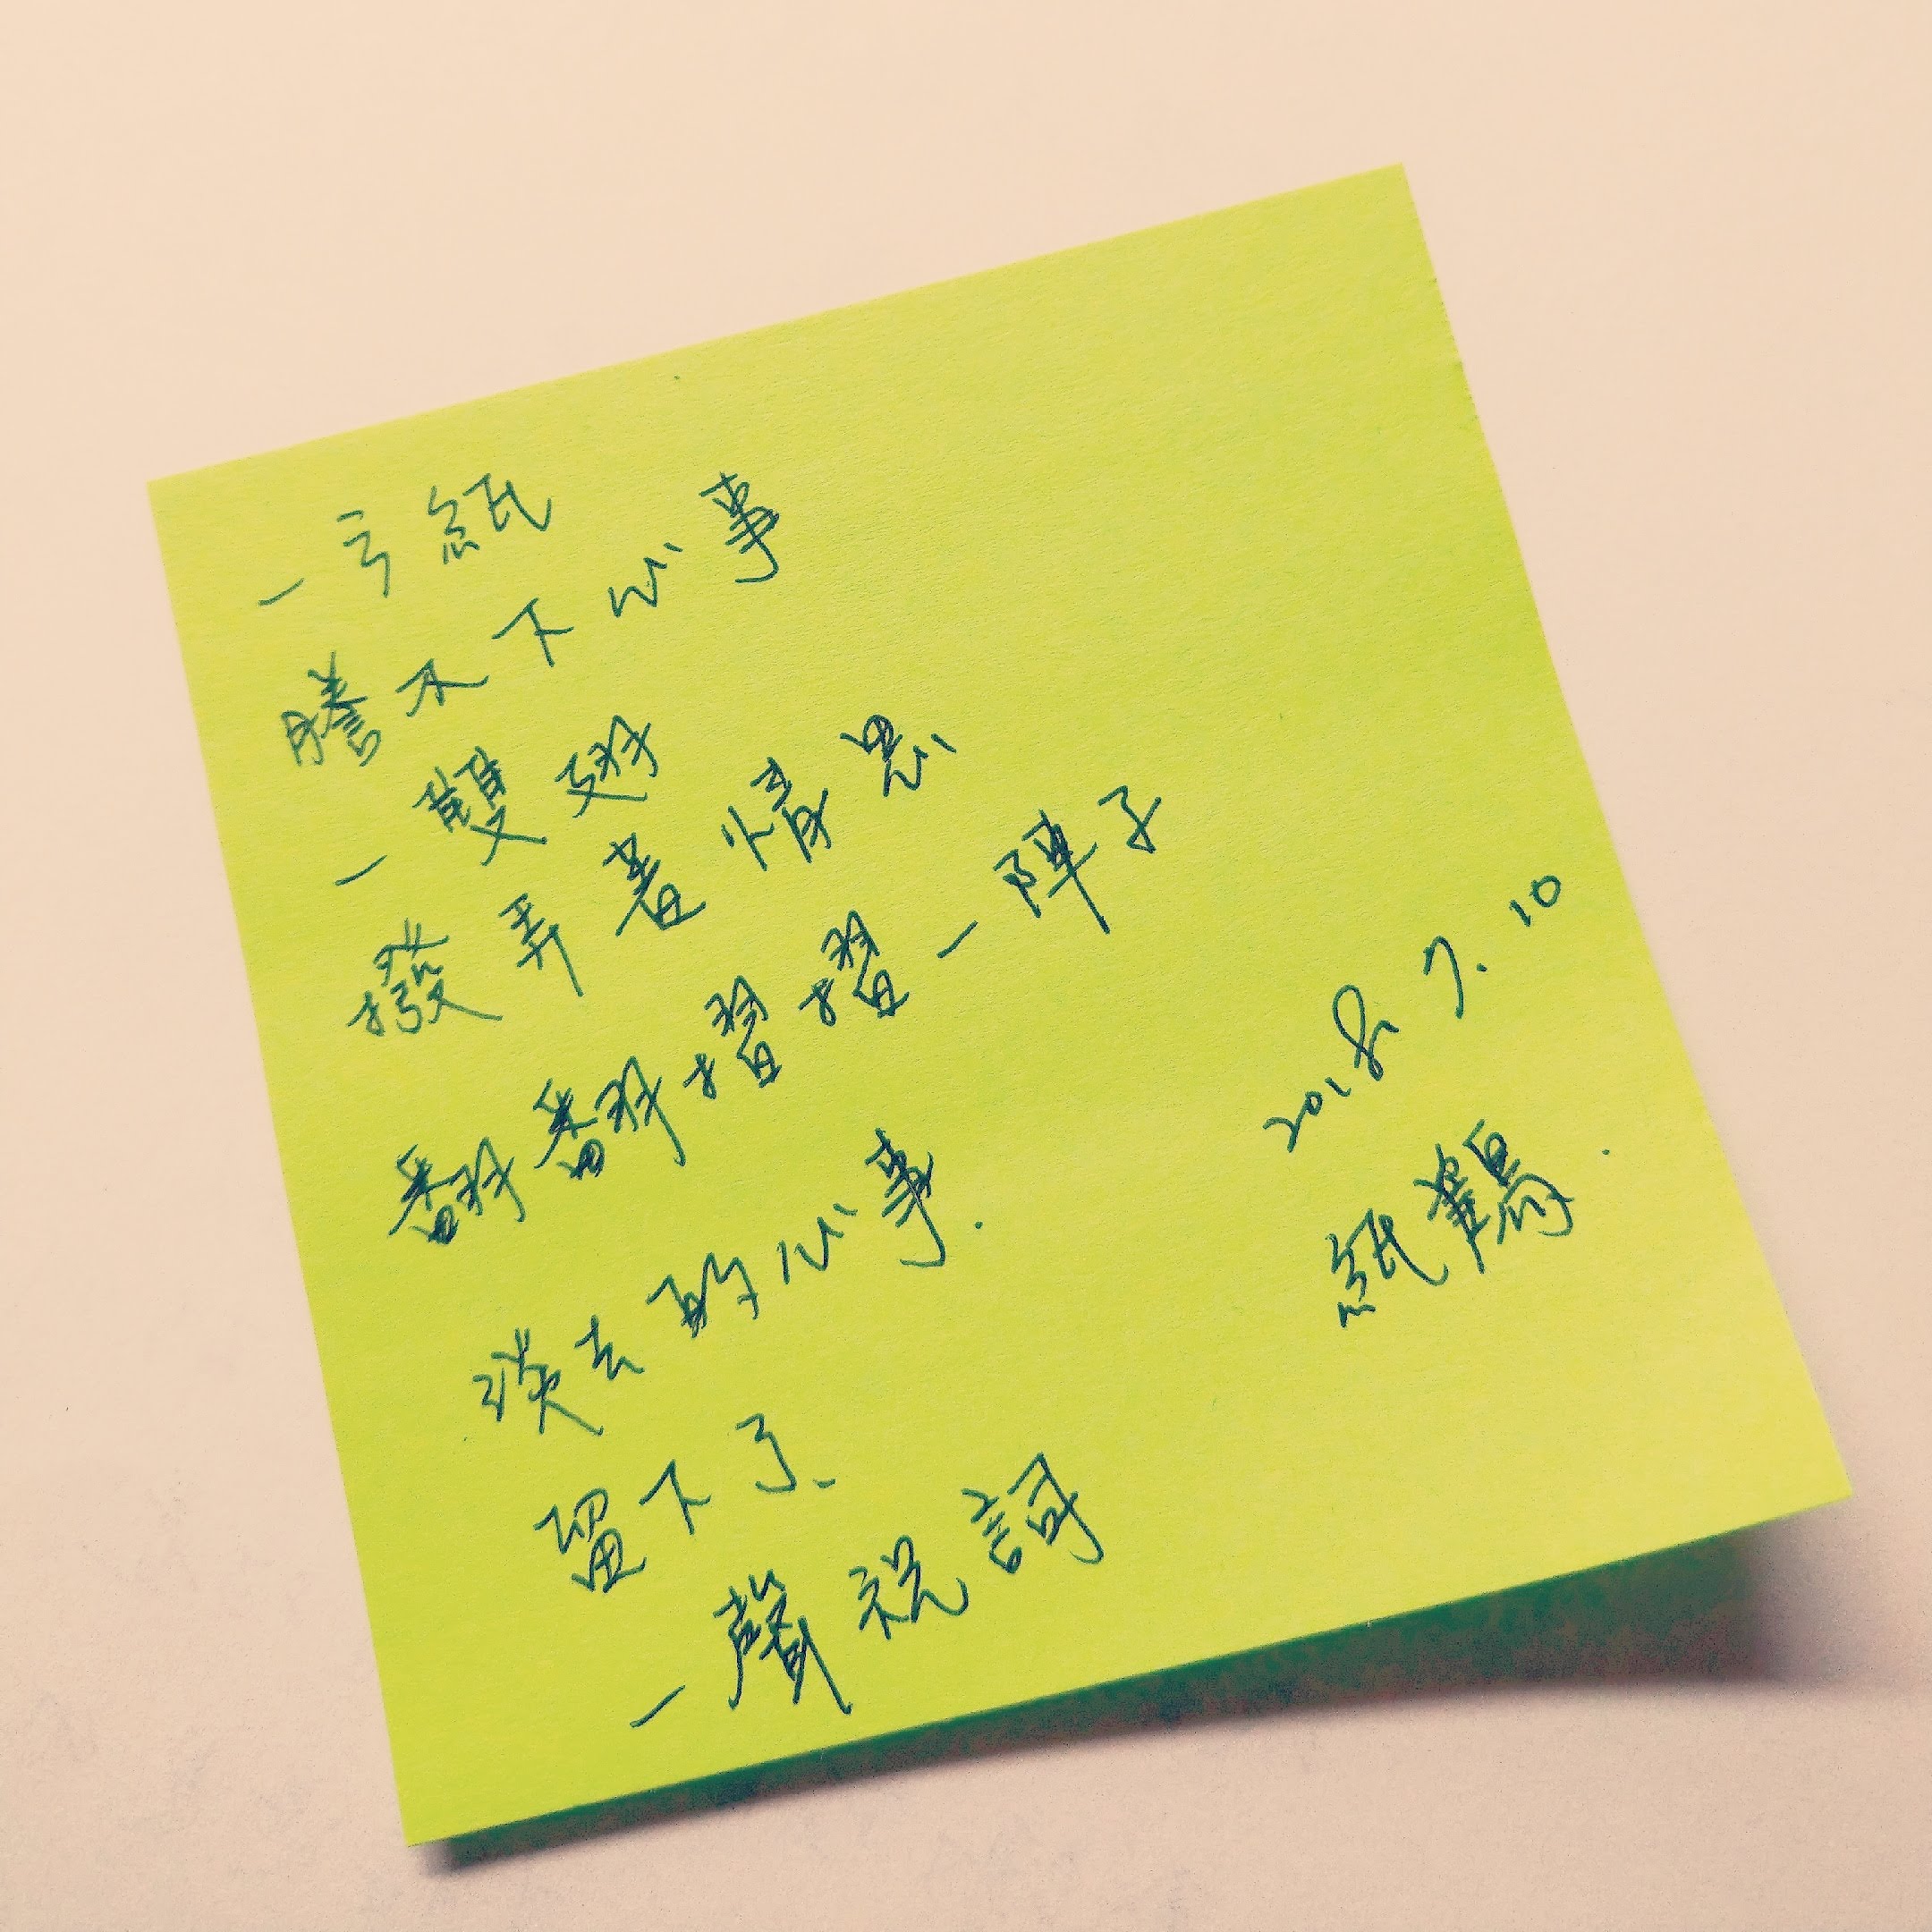 一方紙
謄不下心事
一雙翅
撥弄著情思
翻翻摺摺一陣子
淡去的心事.
留下了、
一聲祝詞
2018.7.10
紙鶴.